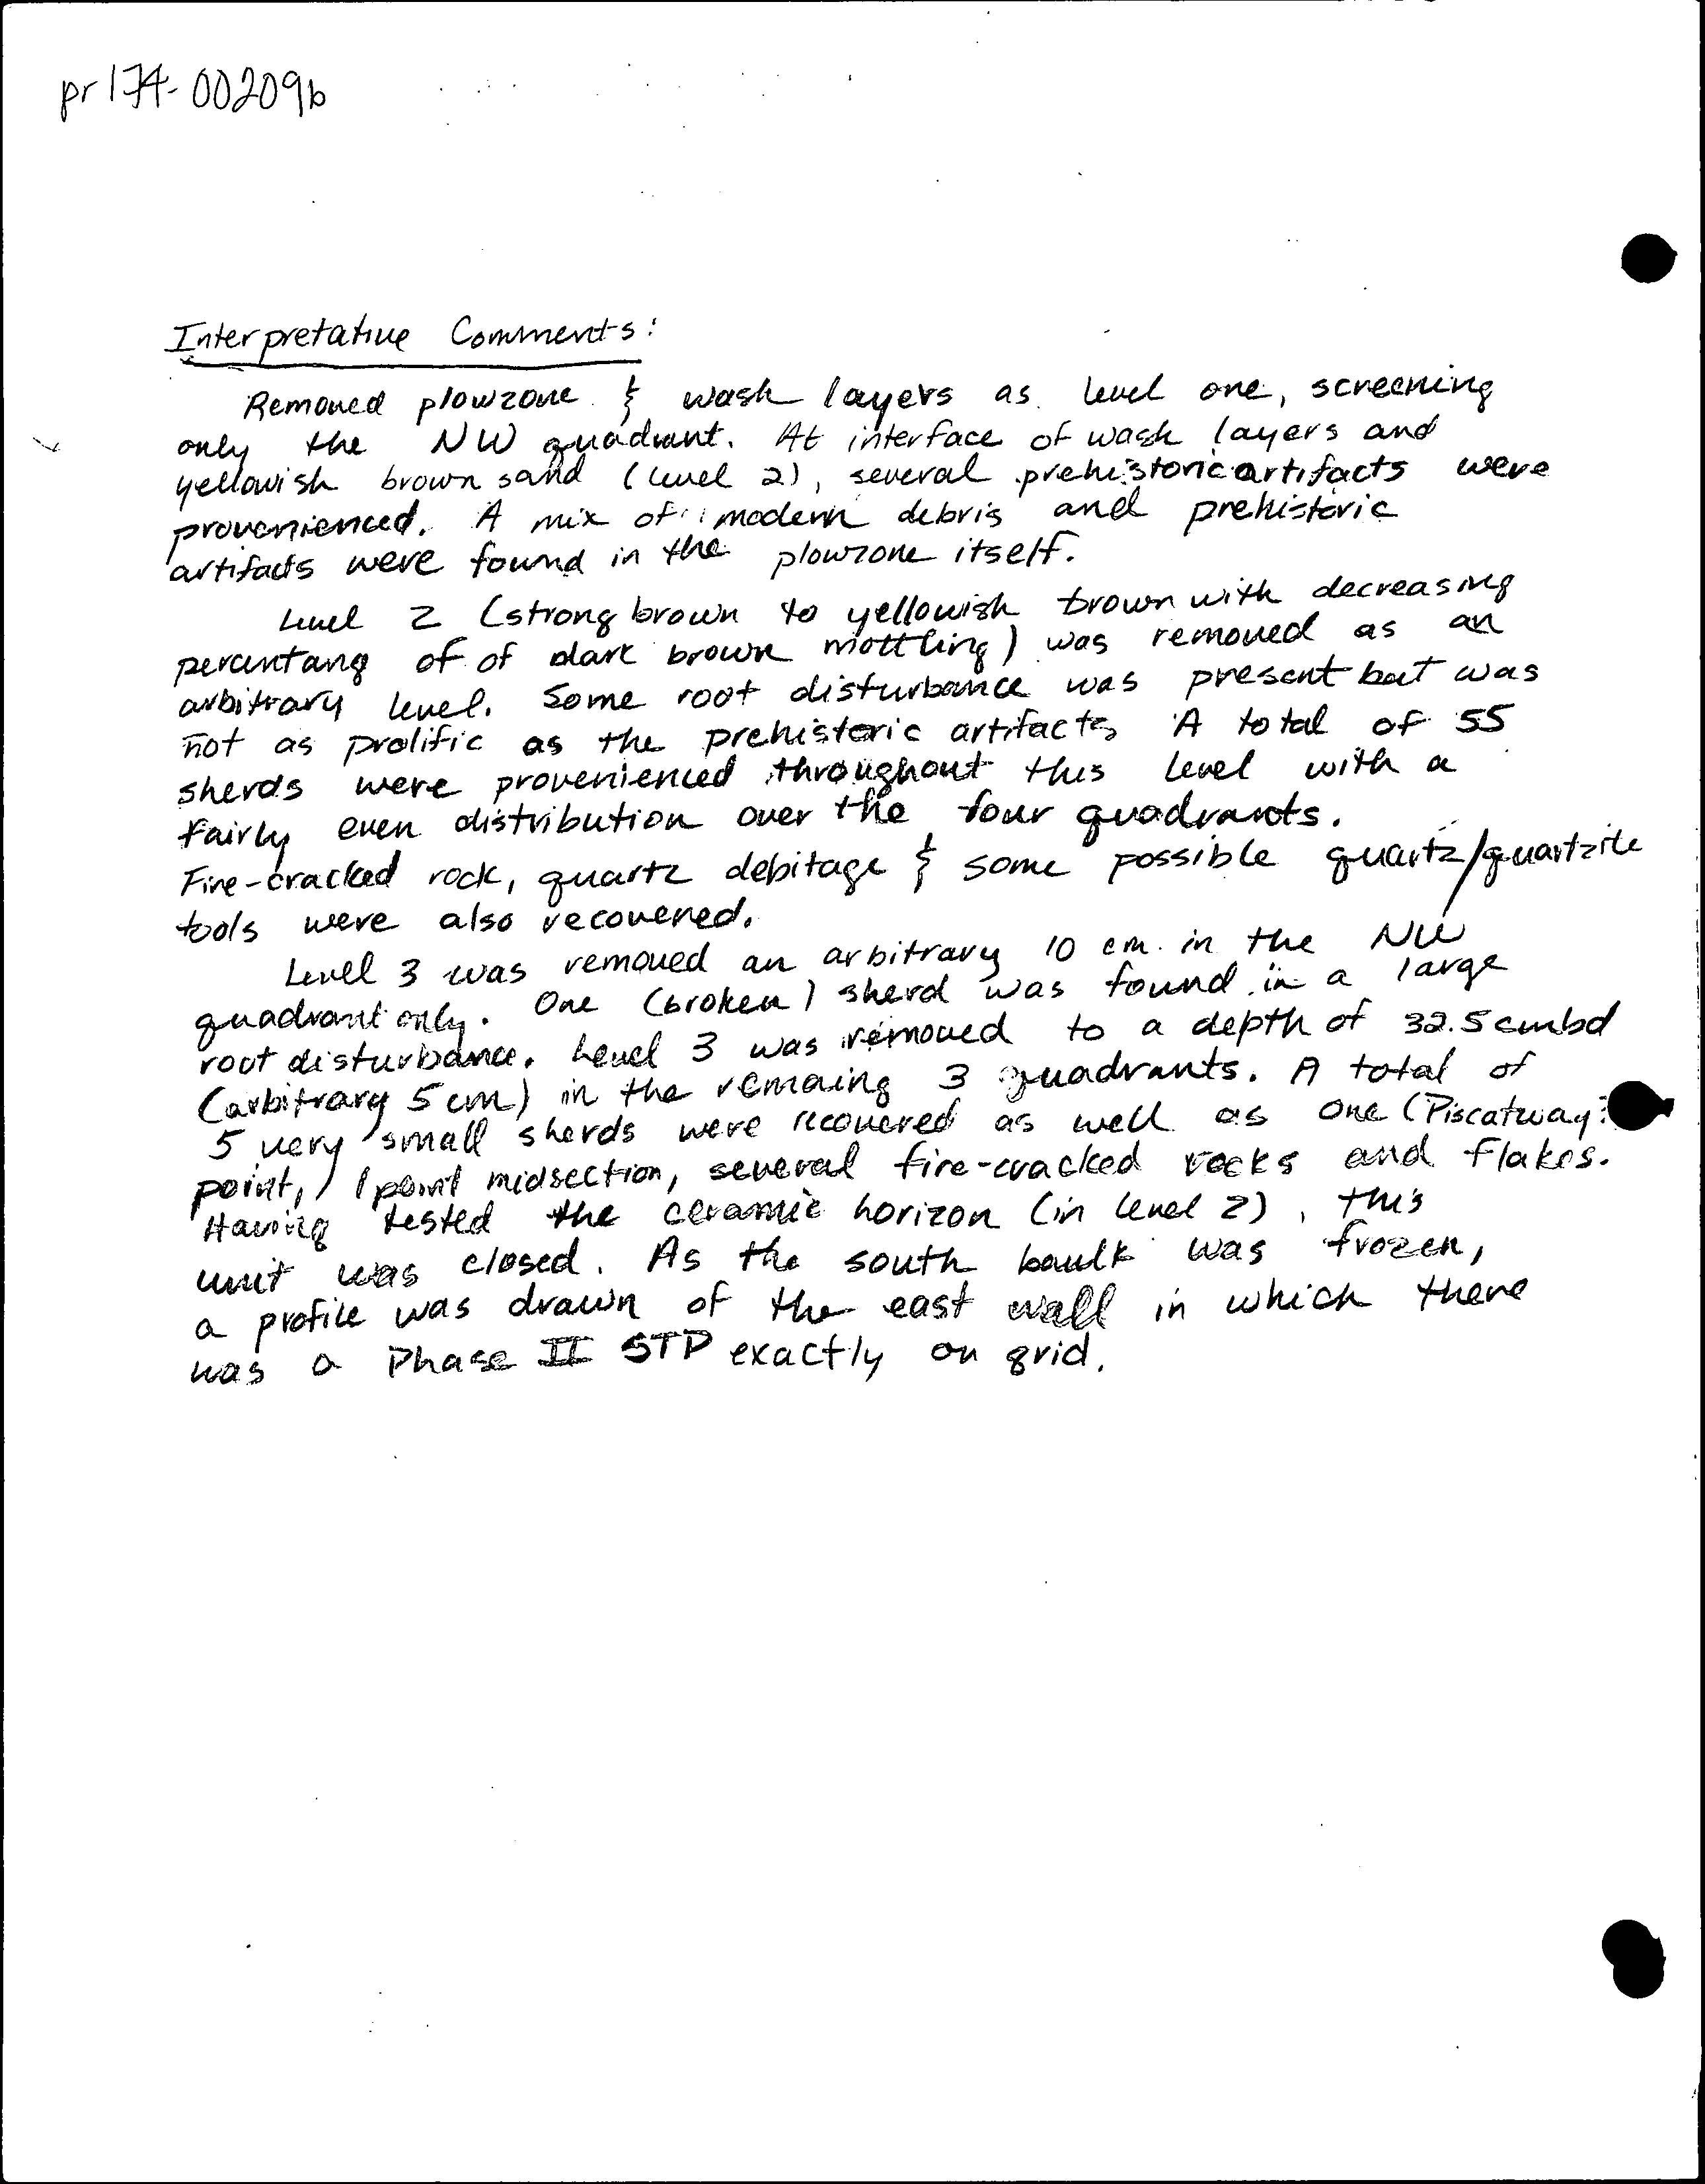 pr174-00209b
Interpretative Comments:
Removed plowzone & wash layers as level one, screening
only the NW quadrant. At interface of wash layers and
yellowish brown sand (level 2), several prehistoric artifacts were
provenienced. A mix of modern debris and prehistoric
artifacts were found in the plowzone itself.
Level 2 (strong brown to yellowish brown with decreasing
percentang of of dark brown mottling) was removed as an
arbitrary level. Some root disturbance was present but was
not as prolific as the prehistoric artifacts. A total of 55
sherds were provenienced throughout this level with a
fairly even distribution over the four quadrants.
Fire-cracked rock, quartz debitage & some possible quartz/quartzite
tools were also recovered.
Level 3 was removed an arbitrary 10 cm in the NW
quadrant only. One (broken) sherd was found in a large
root disturbance. Level 3 was removed to a depth of 32.5 cmbd
(arbitrary 5 cm) in the remaing 3 quadrants. A total of
5 very small sherds were recovered as well as one (Piscatway?
point, 1 point midsection, several fire-cracked rocks and flakes.
Having tested the ceramic horizon (in level 2), this
unit was closed. As the south baulk was frozen,
a profile was drawn of the east wall in which there
was a Phase II STP exactly on grid.